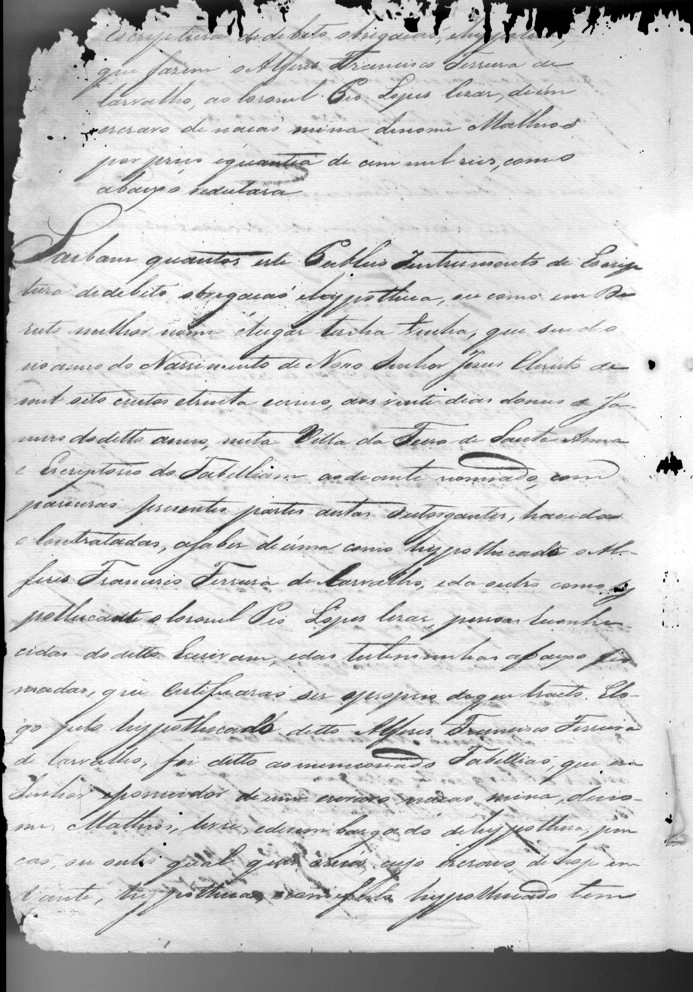 Escriptura de debito, obrigacaó, ehypotheca,
que fazem o Alferes Francisco Ferreira de
Carvalho, ao Coronel Pio Lopes Cezar, deum
escravo de nacaó mina denome Matheos
por preço equantia de cem mil reis, como
abaixo sedeclara
Saibam quantos este Publico Instrumento de Escrip
tura dedebito, obrigacaó ehypotheca, ou como em Di
reito melhor nome elugar tenha, que sendo
noanno do Nascimento de Nosso Senhor Jesus Christo de
mil oito centos etrinta e, aos vinte dias domes de Ja
neiro doditto anno, nesta Villa da Feira de Santa Anna
e Escriptorio do Tabelliam aodiante nomiado, com
pareceras presentes partes aestas outorgantes, havidas
e Contratadas, asaber deuma como hypothecado o Al-
feres Francisco Ferreira de Carvalho, eda outra como hy
pothecante o Coronel Pio Lopes Cezar, pessoas reconhe-
cidas doditto Escrivam, edas testemunhas abaixo fir
madas, que Certificaras ser oproprio doque tracto. Elo-
go pelo hypothecado ditto Alferes Francisco Ferreira
de Carvalho, foi ditto aomencionado Tabelliaó, que era
Senhor epossuidor deum escravo nacaó mina, deno-
me Matheos, livre, edesembargado dehypotheca, pin
cao, ou outro qual quer, cujo escravo de hoje em
diante, hypotheca hypothecado tem